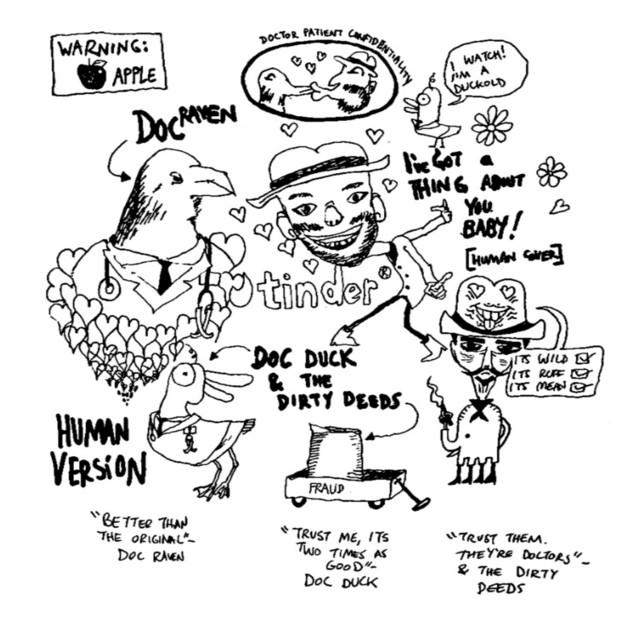 WARNING:
APPLE
DOCTOR PATIENT CONFIDENTIALITY
I WATCH!
I'M A
DUCKOLD
DOC RAVEN
I'VE GOT a
THING ABOUT
YOU
BABY!
[HUMAN COVER]
tinder ®
ITS WILD
ITS RUFF
ITS MEAN
DOC DUCK
& THE
DIRTY DEEDS
HUMAN
VERSION
FRAUD
"BETTER THAN
THE ORIGINAL"-
DOC RAVEN
"TRUST ME, ITS
TWO TIMES AS
GOOD"-
DOC DUCK
"TRUST THEM.
THEY'RE DOCTORS"-
& THE DIRTY
DEEDS